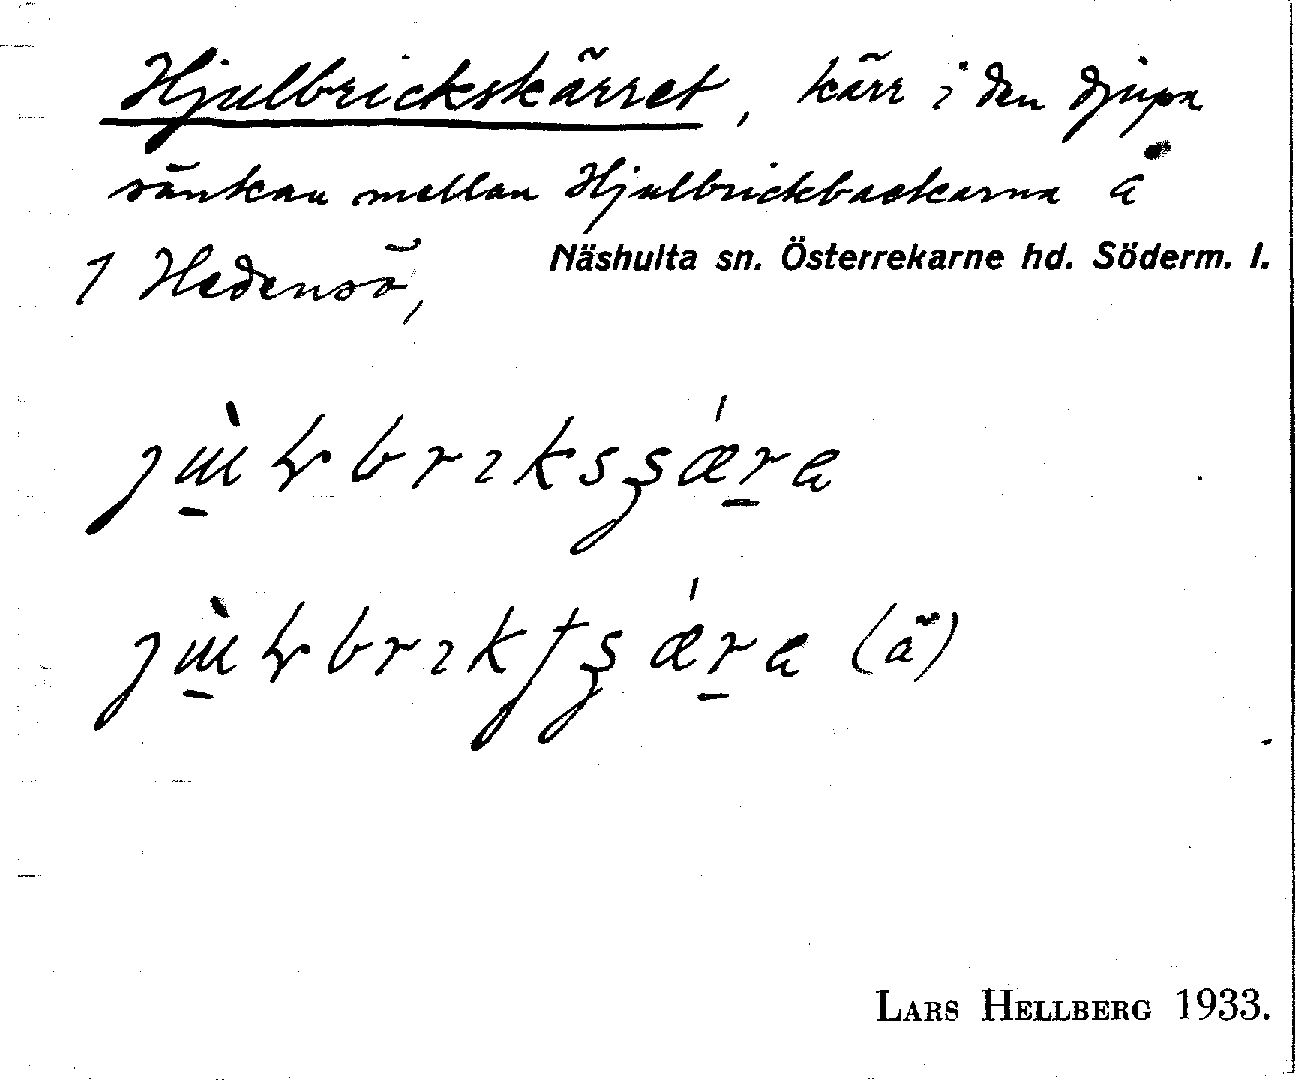 Hjulbrickskärret, kärr i den djupa
sänkan mellan Hjulbrickbackarna å
1 Hedensö, Näshulta sn. Österrekarne hd. Söderm. l.
(ä)
LARS HELLBERG 1933.